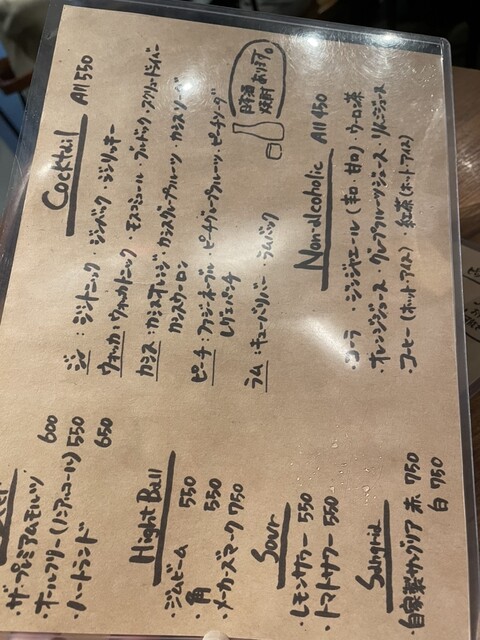 ザ・プレミアムモルツ 600
・オールフリー(ノンアルコール) 550
・ハートランド 650
Hight Ball
・ジムビーム 550
・角 550
・メーカーズマーク 750
Sour
・レモンサワー 550
・トマトサワー 550
Sangria
自家製サングリア 赤 750
白 750
Cocktail All 550
ジン:ジントニック・ジンバック・ジンリッキー
ウォッカ:ウォッカトニック・モスコミュール・ブルドック・スクリュードライバー
カシス:カシスオレンジ・カシスグレープフルーツ・カシスソーダ
カシスウーロン
ピーチ:ファジーネーブル・ピーチグレープフルーツ・ピーチソーダ
レゲェパンチ
ラム:キューバリバー・ラムバック
焼酎あります。
Non-alcoholic All 450
・コーラ・ジンジャエール(辛口・甘口)ウーロン茶
・オレンジジュース・グレープフルーツジュース・りんごジュース
・コーヒー(ホット・アイス) 紅茶(ホット・アイス)